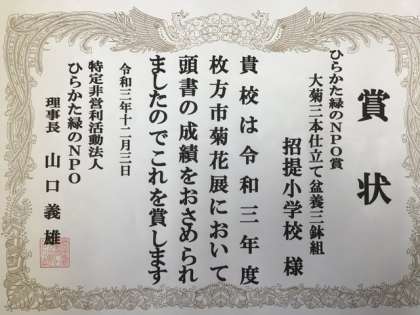 賞状
ひらかた緑のNPO賞
大菊三本仕立て盆養三鉢組
招提小学校 様
貴校は令和三年度
枚方市菊花展において
頭書の成績をおさめられ
ましたのでこれを賞します
令和三年十二月三日
特定非営利活動法人
ひらかた緑のNPO
理事長 山口義雄